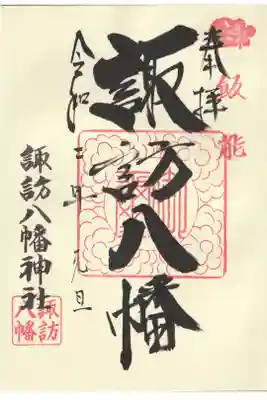 飯能
奉拝
諏訪八幡
令和二年 元旦
諏訪八幡神社
諏訪
八幡